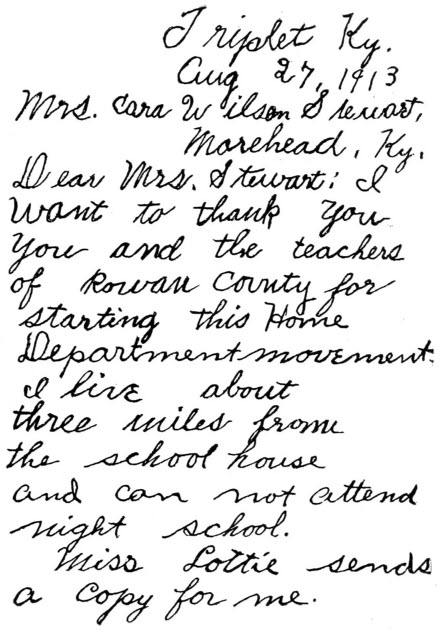 Triplet Ky.
Aug 27, 1913
Mrs. Cora Wilson Stewart,
Morehead, Ky.
Dear Mrs. Stewart: I
Want to thank You
You and the teachers
of Rowan County for
starting this Home
Department movement.
I live about
three miles from
the school house
and can not attend
night school.
Miss Lottie sends
a copy for me.